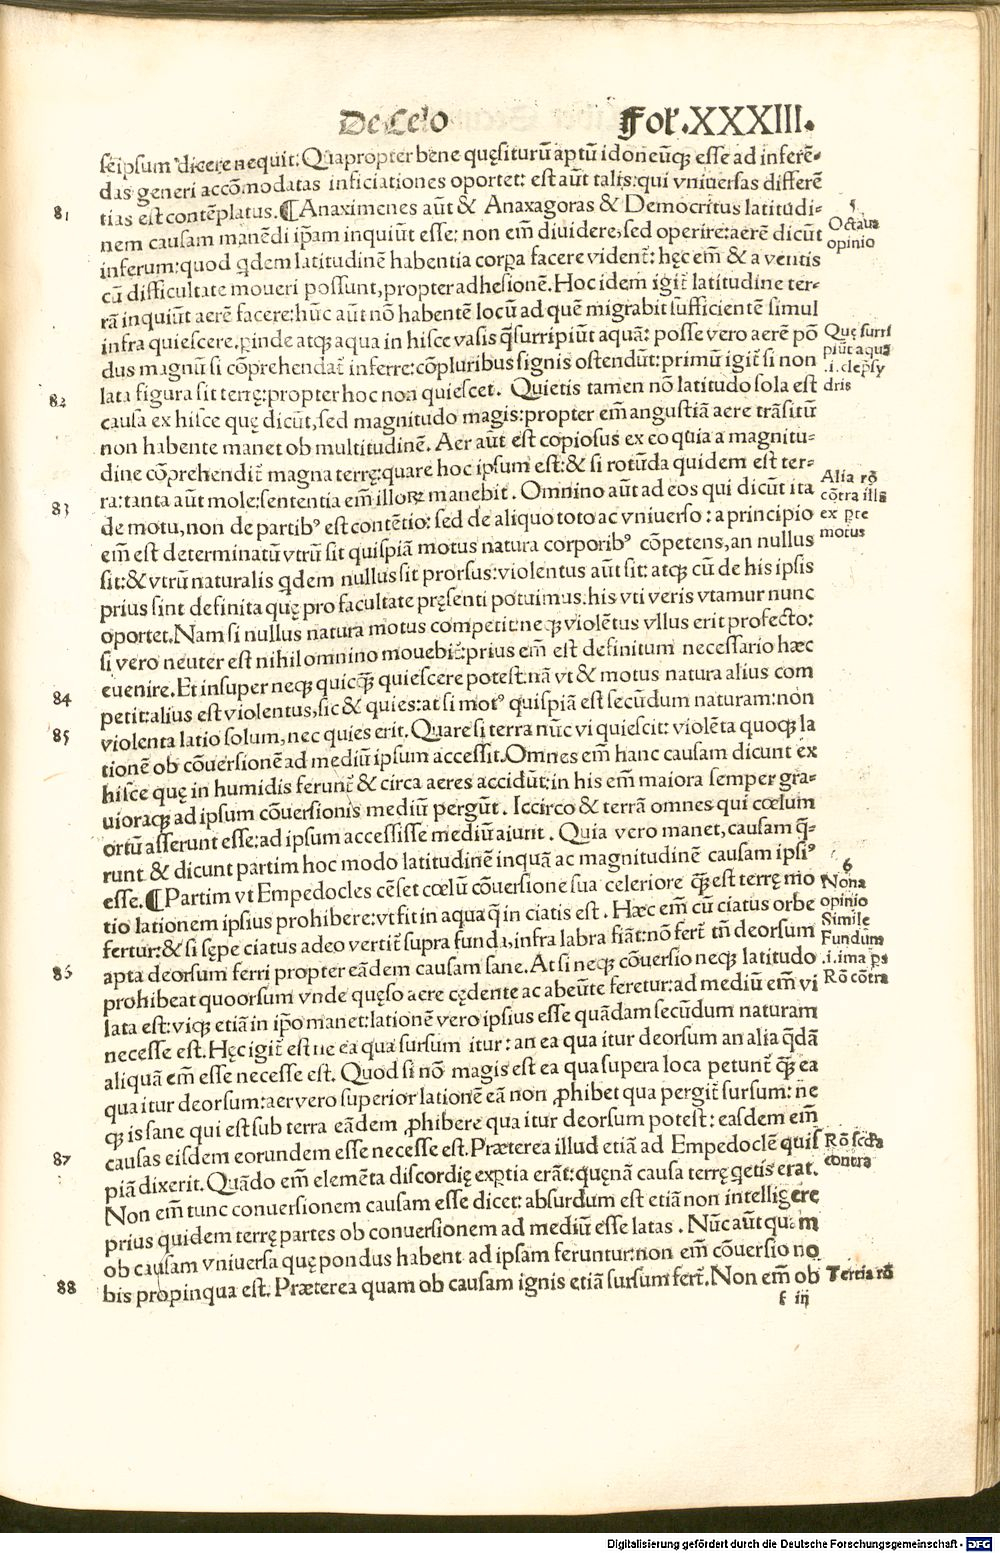 De Celo Foł.XXXIII.
seipsum dicere nequit: Quapropter bene quęsiturũ aptũ idoneũqꝫ esse ad inferẽ-
das generi accõmodatas inficiationes oportet: est aũt talis: qui vniuersas differẽ
81 tias est contẽplatus. ¶ Anaximenes aũt & Anaxagoras & Democritus latitudi-
5
Octaua
opinio
nem causam manẽdi ip̃am inquiũt esse: non em̃ diuidere, sed operire: aerẽ dicũt
inferum: quod q̇dem latitudinẽ habentia corꝑa facere videnť: hęc em̃ & a ventis
cũ difficultate moueri possunt, propter adhesionẽ. Hoc idem igiť latitudine ter-
rã inquiũt aerẽ facere: hũc aũt nõ habentẽ locũ ad quẽ migrabit sufficientẽ simul
infra quiescere. ꝑinde atqꝫ aqua in hisce vasis q̃ surripiũt aquã: posse vero aerẽ põ
Quę surri
piũt aquã
.i. clepsy
dris
dus magnũ si cõprehendať inferre: cõpluribus signis ostendũt: primũ igiť si non
lata figura sit terrę: propter hoc non quiescet. Quietis tamen nõ latitudo sola est
82 causa ex hisce quę dicũt, sed magnitudo magis: propter em̃ angustiã aere trãsitũ
non habente manet ob multitudinẽ. Aer aũt est copiosus ex eo quia a magnitu-
dine cõprehendiť magna terrę: quare hoc ipsum est: & si rotũda quidem est ter-
ra: tanta aũt mole: sententia em̃ illoꝝ manebit. Omnino aũt ad eos qui dicũt ita
Alia rõ
cõtra illã
ex ꝑte
motus
83 de motu, non de partibꝰ est contẽtio: sed de aliquo toto ac vniuerso: a principio
em̃ est determinatũ vtrũ sit quispiã motus natura corporibꝰ cõpetens, an nullus
sit: & vtrũ naturalis q̇dem nullus sit prorsus: violentus aũt sit: atqꝫ cũ de his ipsis
prius sint definita quę pro facultate pręsenti potuimus: his vti veris vtamur nunc
oportet. Nam si nullus natura motus competit: neqꝫ violẽtus vllus erit profecto:
si vero neuter est nihil omnino mouebiť: prius em̃ est definitum necessario hæc
euenire. Et insuper neqꝫ quicqꝫ̃ quiescere potest: nã vt & motus natura alius com
84 petit: alius est violentus, sic & quies: at si motꝰ quispiã est secũdum naturam: non
85 violenta latio solum, nec quies erit. Quare si terra nũc vi quiescit: violẽta quoqꝫ la
tionẽ ob cõuersionẽ ad mediũ ipsum accessit. Omnes em̃ hanc causam dicunt ex
hisce quę in humidis ferunť & circa aeres accidũt: in his em̃ maiora semper gra-
uioraqꝫ ad ipsum cõuersionis mediũ pergũt. Iccirco & terrã omnes qui cœlum
ortũ asserunt esse: ad ipsum accessisse mediũ aiunt. Quia vero manet, causam q̃-
runt & dicunt partim hoc modo latitudinẽ inquã ac magnitudinẽ causam ipsiꝰ
esse. ¶ Partim vt Empedocles cẽset cœlũ cõuersione sua celeriore qꝫ̃ est terrę mo
6
Nona
opinio
Simile
Fundũm
.i. ima ꝑs
Rõ cõtra
tio lationem ipsius prohibere: vt fit in aqua q̃ in ciatis est. Hæc em̃ cũ ciatus orbe
fertur: & si sępe ciatus adeo vertiť supra funda, infra labra fiãt: nõ ferť tñ deorsum
86 apta deorsum ferri propter eãdem causam sane. At si neqꝫ cõuersio neqꝫ latitudo
prohibeat quoorsum vnde quęso aere cędente ac abeũte feretur: ad mediũ em̃ vi
lata est: viqꝫ etiã in ip̃o manet: lationẽ vero ipsius esse quãdam secũdum naturam
necesse est. Hęc igiť est ne ea qua sursum itur: an ea qua itur deorsum an alia q̃dã
aliquã em̃ esse necesse est. Quod si nõ magis est ea qua supera loca petunť qꝫ̃ ea
qua itur deorsum: aer vero superior lationẽ eã non ꝓhibet qua pergiť sursum: ne
qꝫ is sane qui est sub terra eãdem ꝓhibere qua itur deorsum potest: easdem em̃
87 causas eisdem eorundem esse necesse est. Præterea illud etiã ad Empedoclẽ quis
Rõ secũda
contra
piã dixerit. Quãdo em̃ elemẽta discordię exꝑtia erãt: quęnã causa terrę q̇etis erat.
Non em̃ tunc conuersionem causam esse dicet: absurdum est etiã non intelligere
prius quidem terrę partes ob conuersionem ad mediũ esse latas. Nũc aũt quam
ob causam vniuersa quę pondus habent ad ipsam feruntur: non em̃ cõuersio no
88 bis propinqua est. Præterea quam ob causam ignis etiã sursum ferť. Non em̃ ob
Tertia rõ
f iij
Digitalisierung gefördert durch die Deutsche Forschungsgemeinschaft - DFG